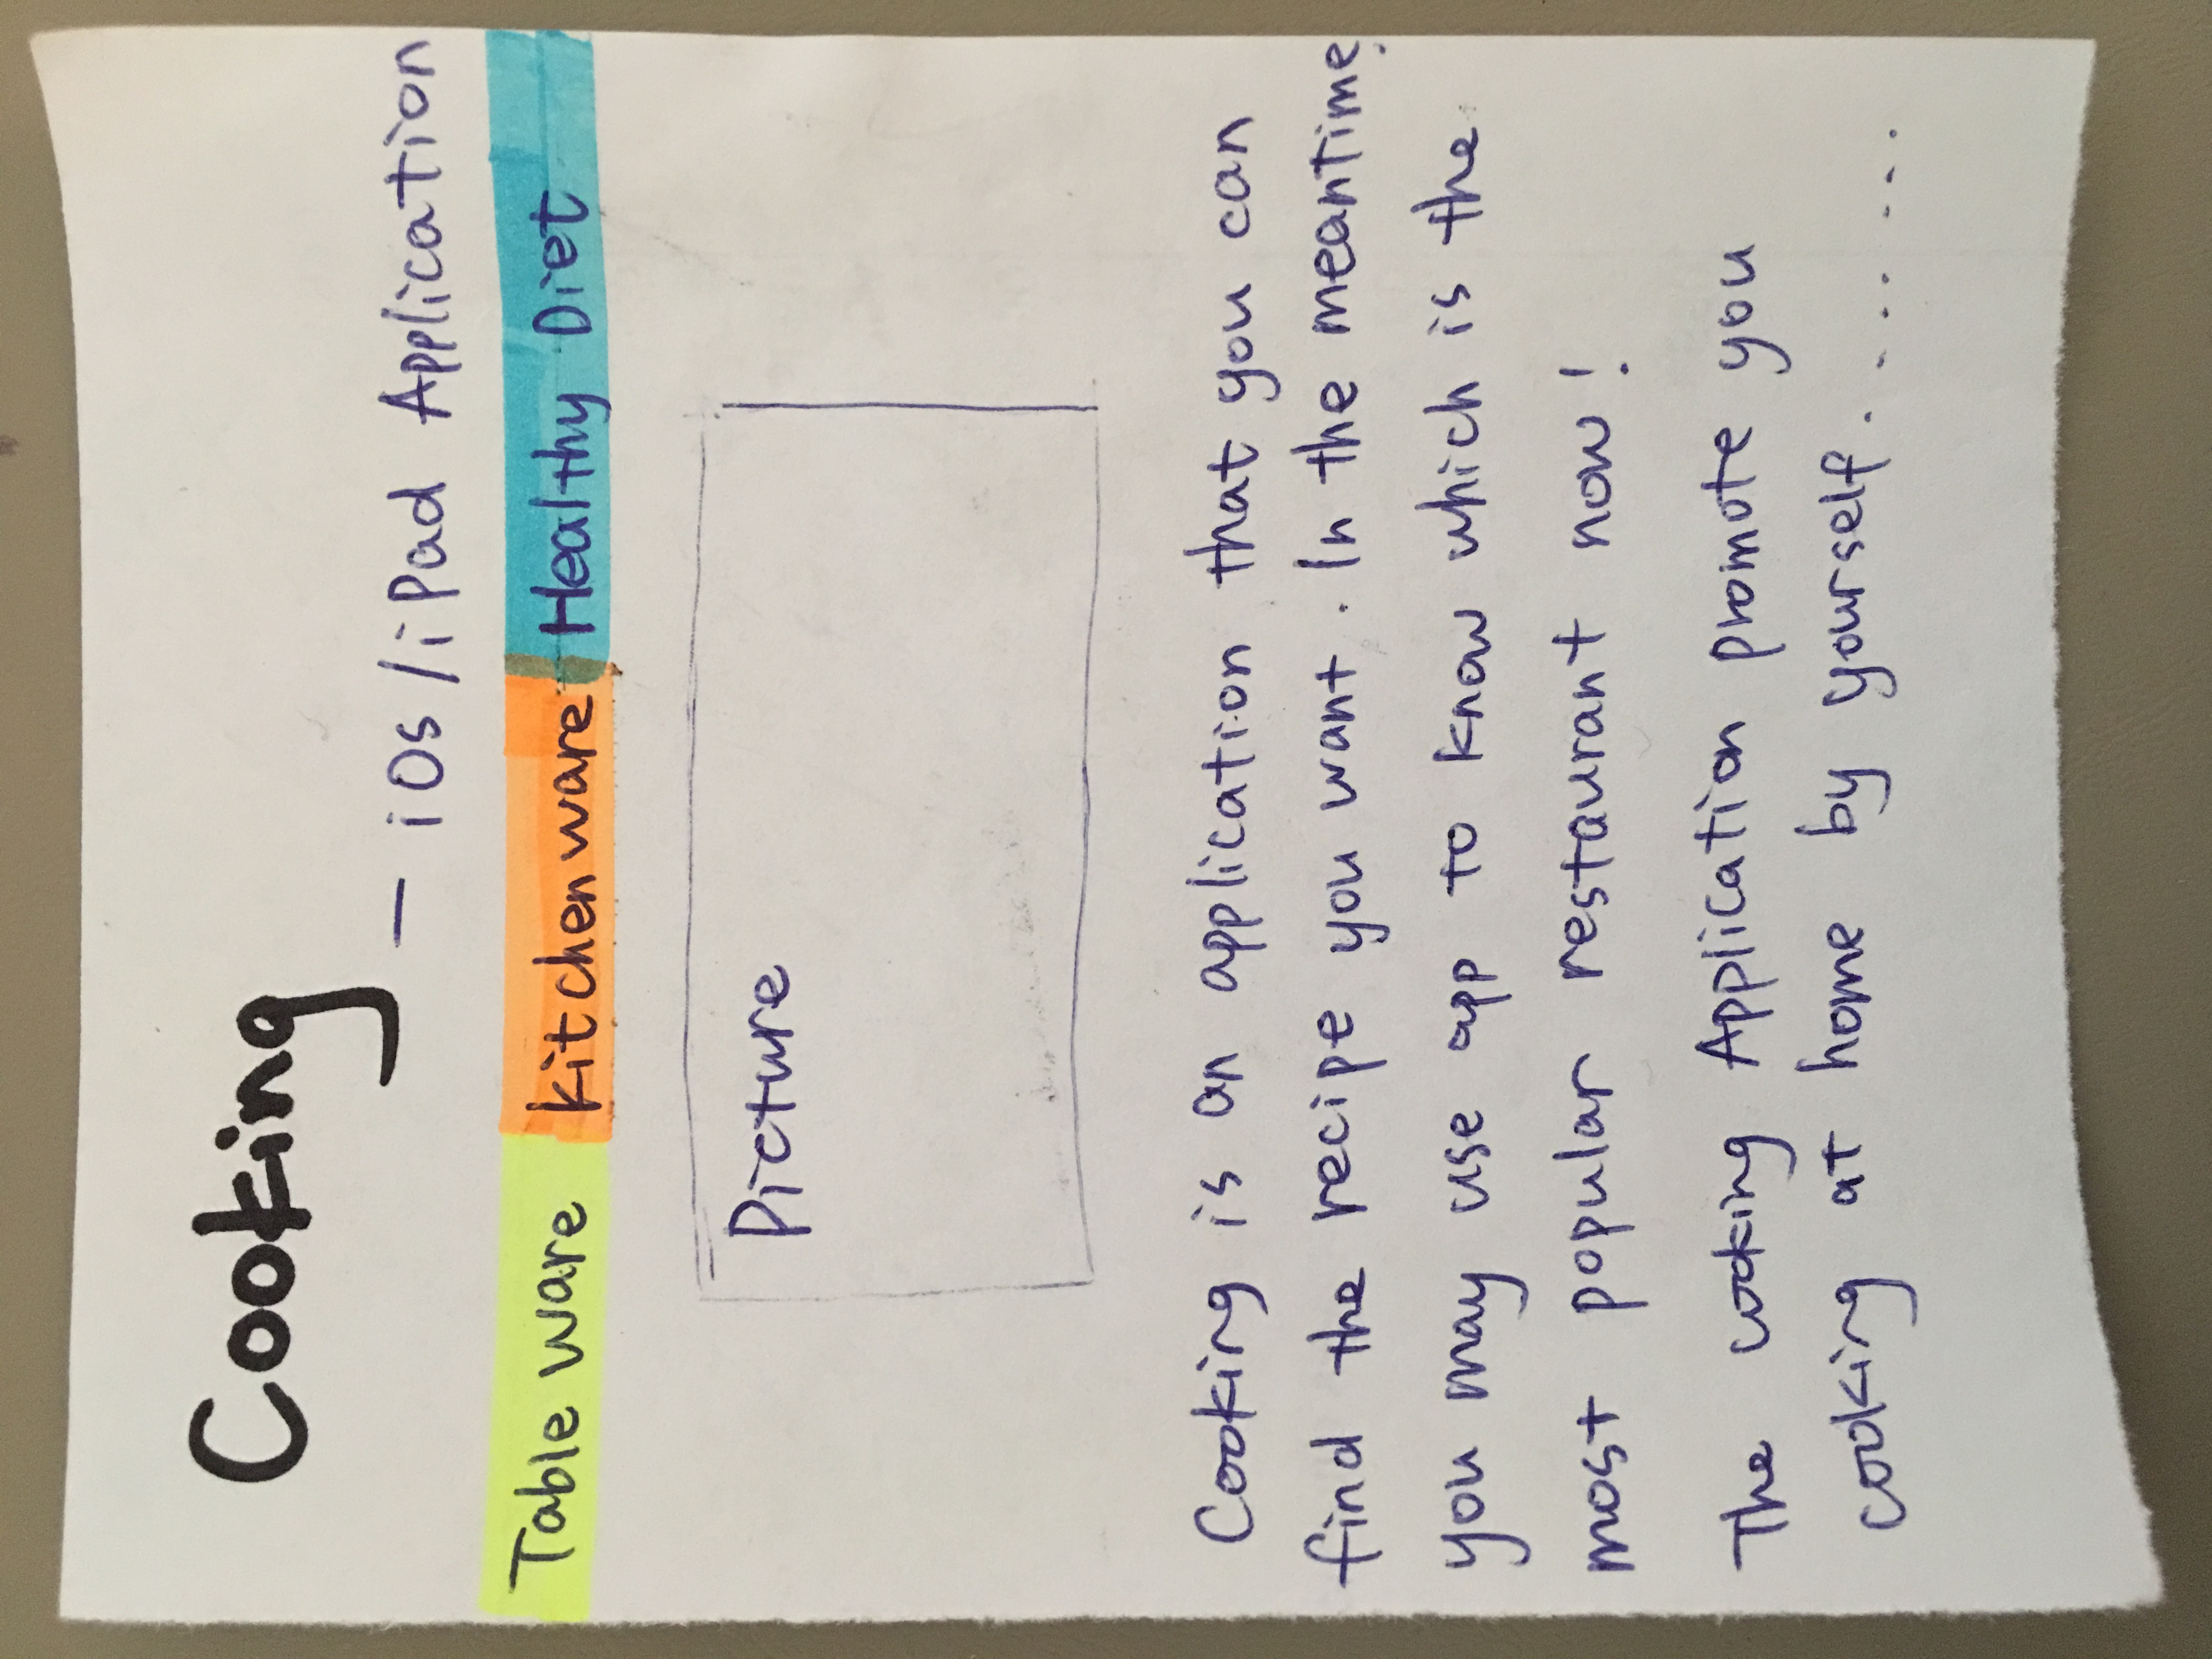 Cooking – iOs/iPad Application
Table ware kitchenware Healthy Diet
Picture
Cooking is an application that you can
find the recipe you want. In the meantime,
you may use app to know which is the
most popular restaurant now!
The cooking Application promote you
cooking at home by yourself.......